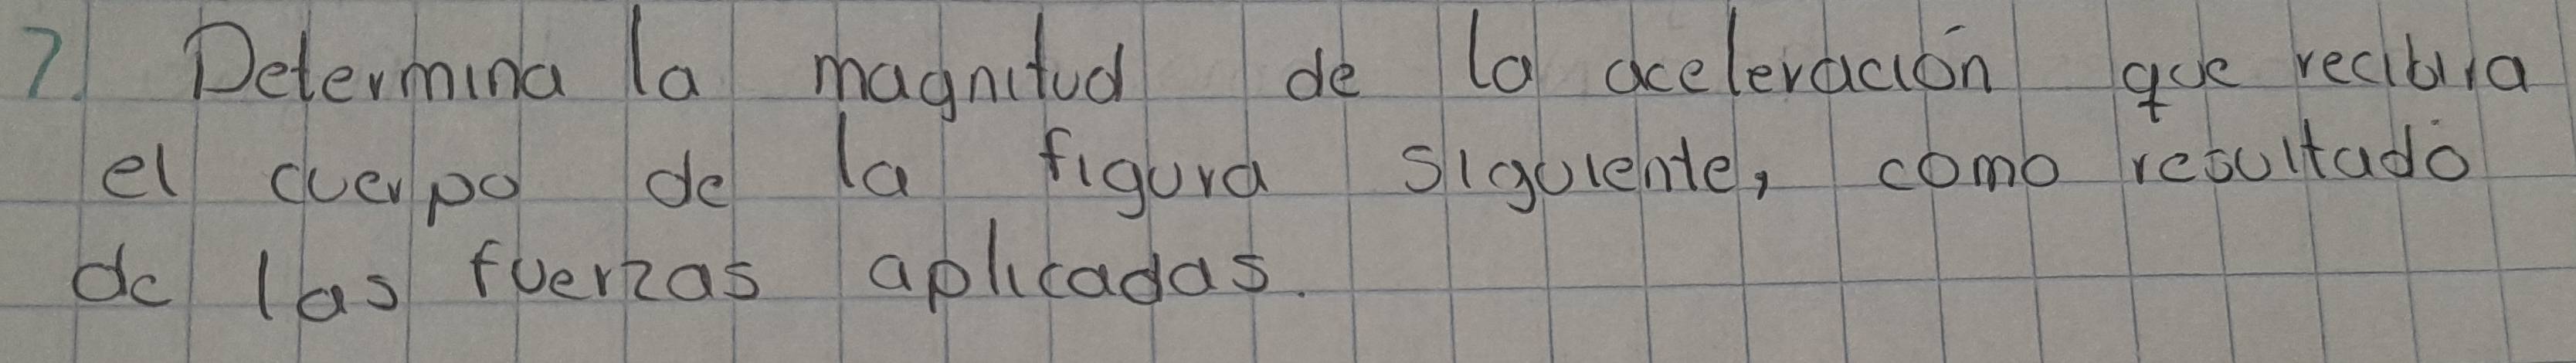 7. Determina la magnitud de la aceleración que recibira
el cuerpo de la figura siguiente, como resultado
de las fuerzas aplicadas.